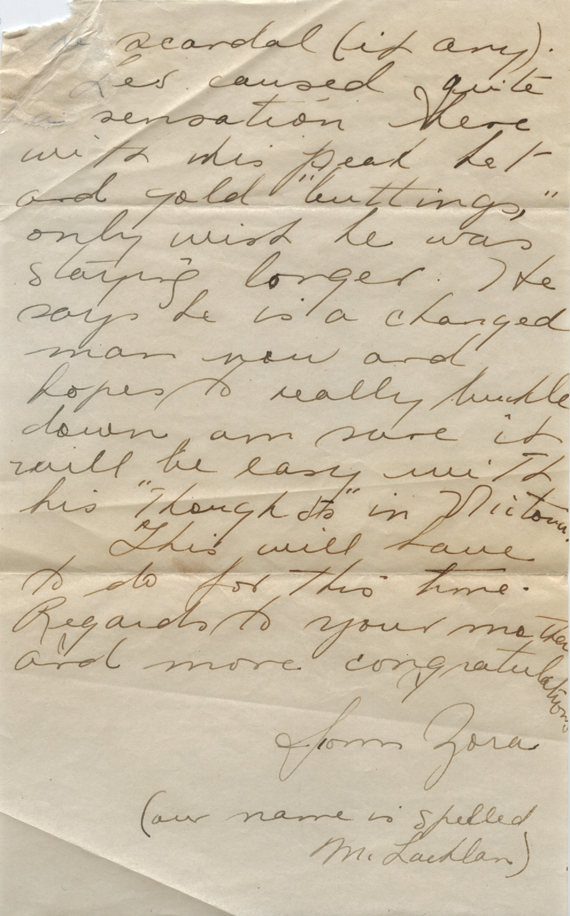 scandal (if any).
Les. caused quite
a sensation here
with his peak hat
and gold "buttings,"
only wish he was
staying longer. He
says he is a changed
man now and
hopes to really buckle
down am sure it
will be easy with
his "thoughts" in
This will have
to do for this time.
Regards to your mother
and more congratulations
Yours Zora
(our name is spelled
McLachlan)